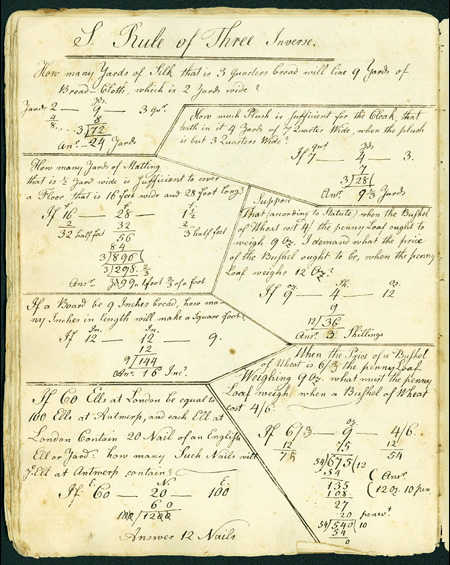 S. Rule of Three Inverse.
How many Yards of Silk that is 3 Quarters broad will line 9 Yards of
Broad-Cloth, which is 2 Yards wide?
Yards 2 — 9 — 3 qrs.
yds.
4 8
8 .. 3 | 72
Ansr. — 24 Yards
How much Plush is sufficient for the Cloak, that
hath in it 4 Yards of 7 Quarter Wide, when the plush
is but 3 Quarters Wide?
qrs. yds.
If 7 — 4 — 3.
7
3 | 28 (
Ansr. 9 1/3 Yards
How many Yards of Matting
that is 1/2 Yard wide is sufficient to cover
a Floor, that is 16 feet wide and 28 foot long?
If 16 — 28 — 1 1/2
2 32 2
32 half feet 56 3 half feet
84
3 | 896 (
3 | 298. 2/3
Ansr. 99 yds. 1 foot 2/3 of a foot
Suppose
That (according to Statute) when the Bushel
of Wheat cost 4/ the penny Loaf ought to
weigh 9 Oz. I demand what the price
of the Bushel ought to be, when the penny
Loaf weighs 12 Oz?
oz. Sh. oz.
If 9 — 4 — 12
9
12 | 36
Ansr. 3 Shillings
If a Board be 9 Inches broad, how ma-
ny Inches in length will make a Square foot?
In. In.
If 12 — 12 — 9.
12
9 | 144
Ansr. 16 Inc.
When the Price of a Bushel
of Wheat is 6/3 the penny Loaf
Weighing 9 Oz. what must the penny
Loaf weigh when a Bushel of Wheat
cost 4/6.
oz.
If 6/3 — 9 — 4/6.
12 75 12
75 54 | 675 (12 54
54
135
108
27
20 penwt.
54 | 540 | 10
54
0
( Ansr.
( 12 oz. 10 pen
If 60 Ells at London be equal to
100 Ells at Antwerp, and each Ell at
London Contain 20 Nail of an English
Ell or Yard: how many Such Nails will
Ell at Antwerp contain?
E. N. E.
If 60 — 20 — 100
60
100 | 1200
Answer 12 Nails